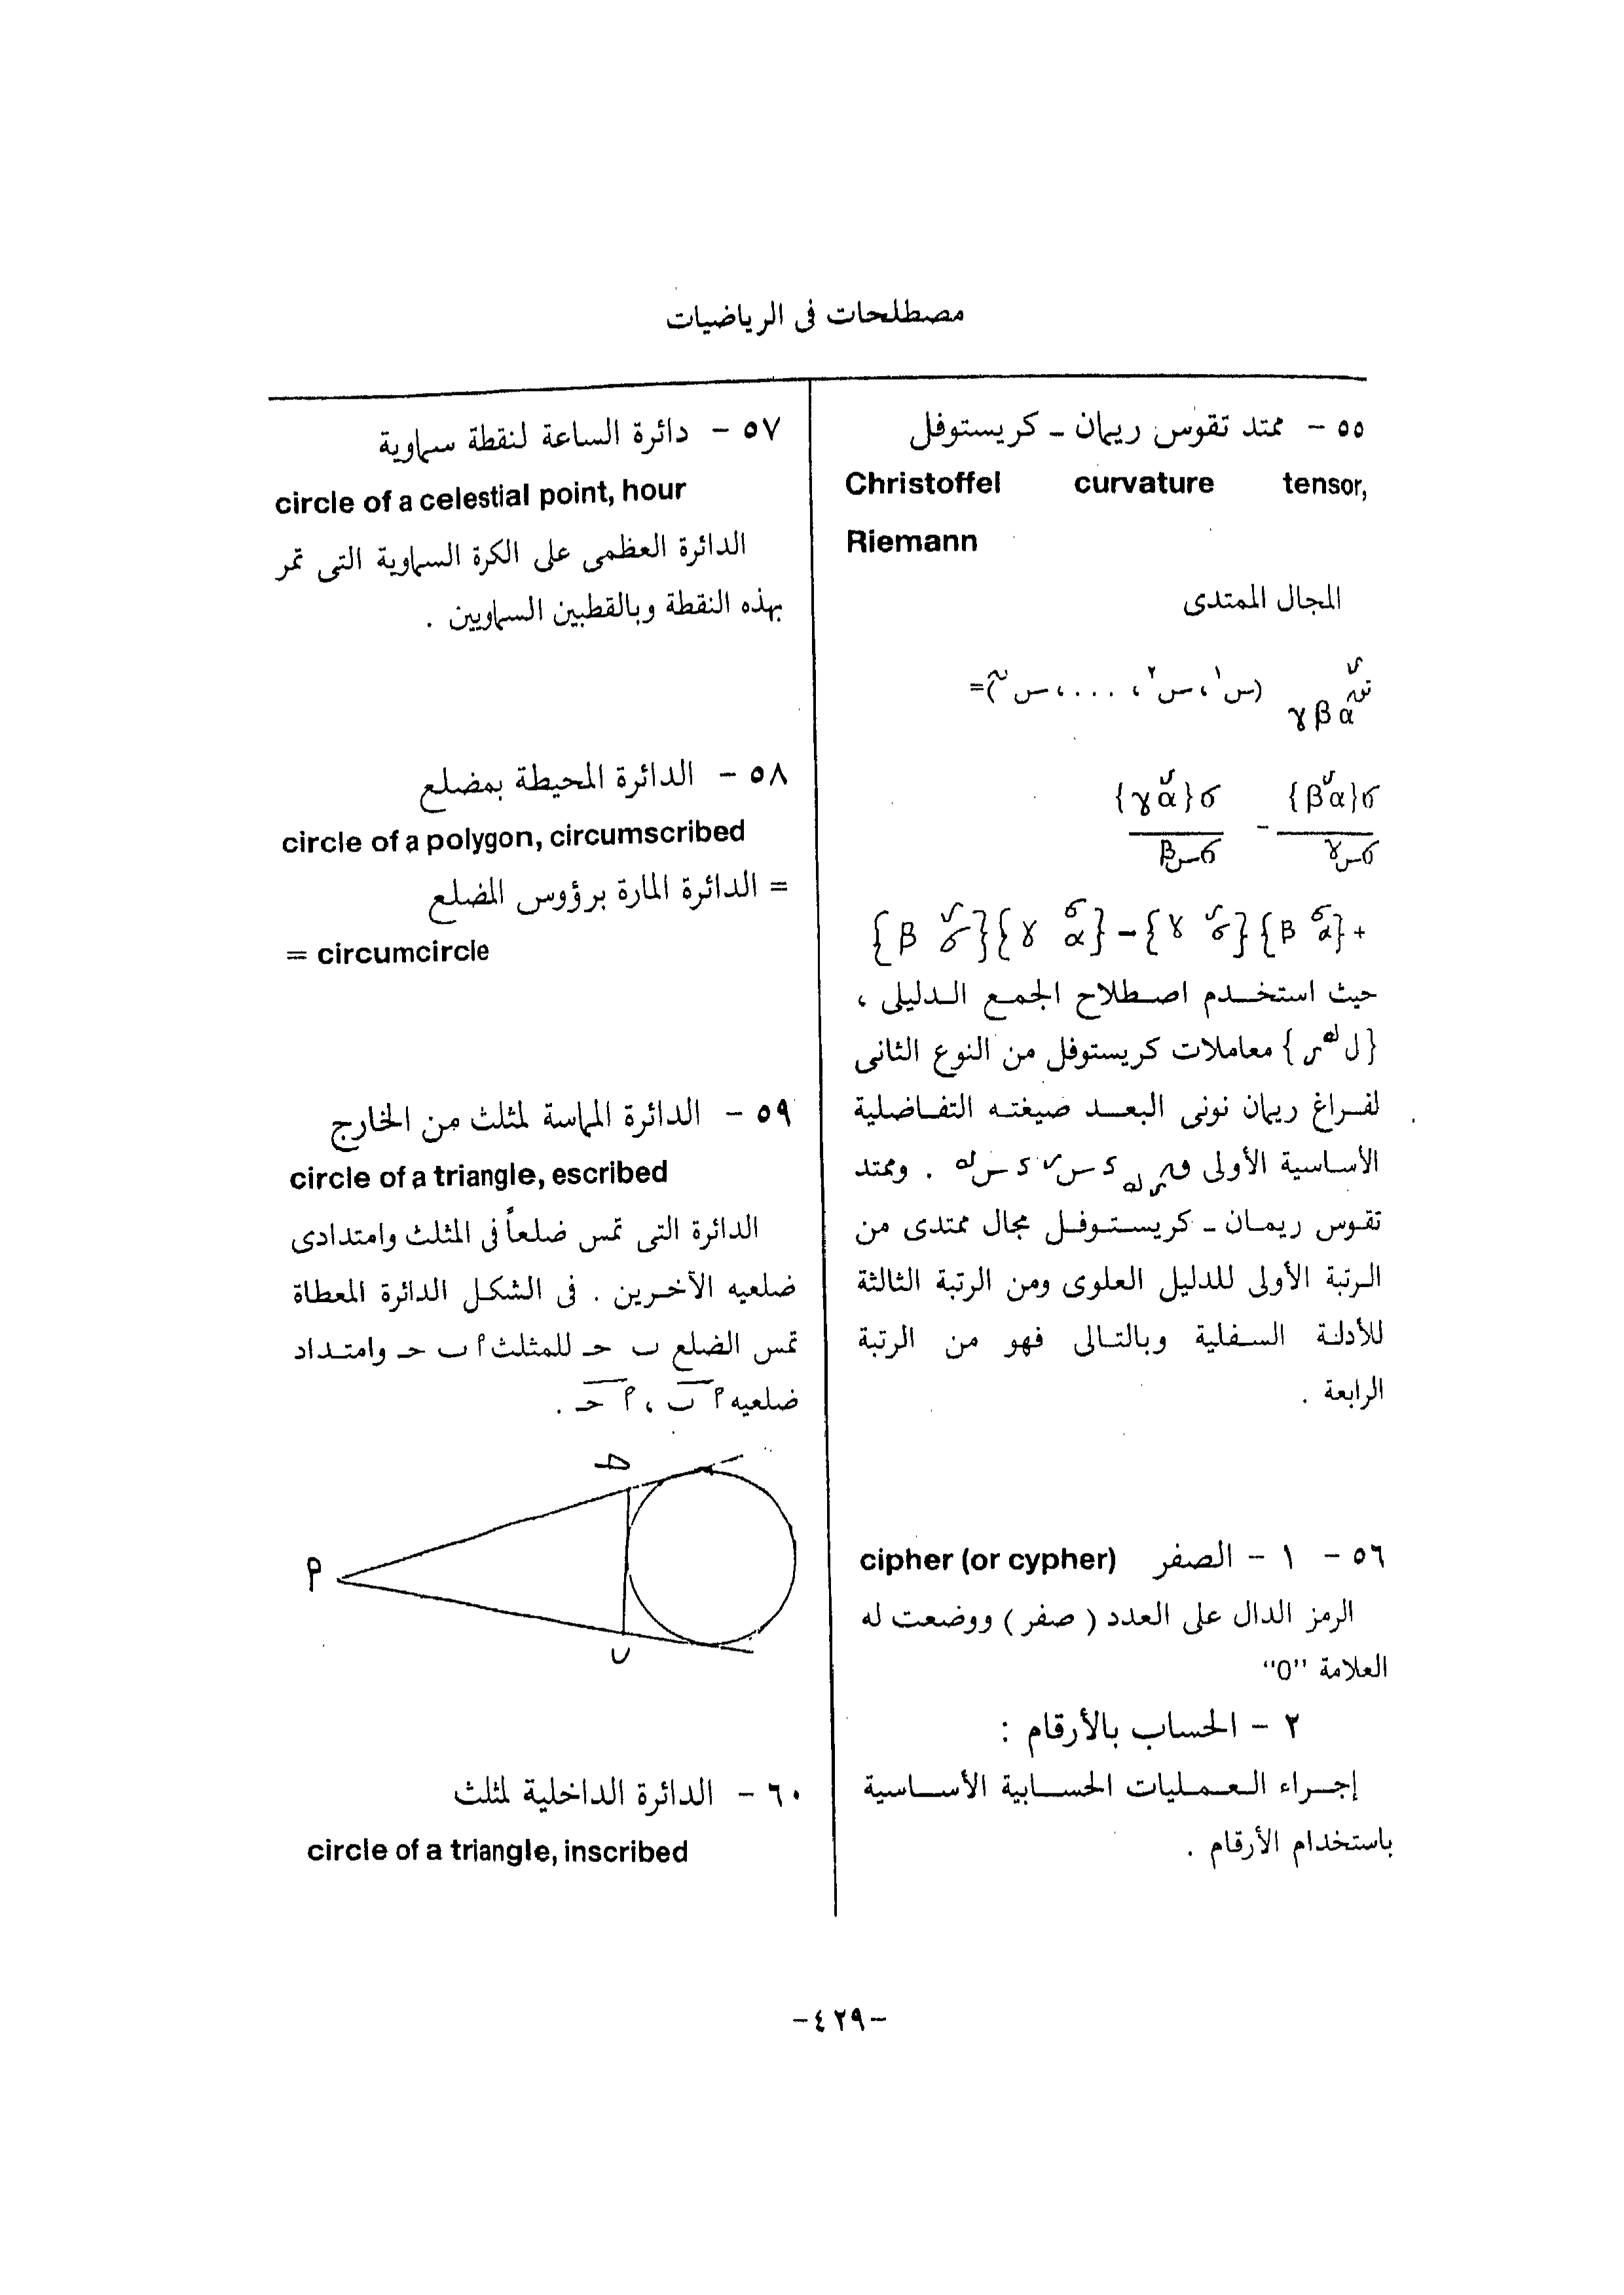 مصطلحات فى الرياضيات
٥٥ - ممتد تقوس ريمان ـ كريستوفل
Christoffel curvature tensor,
Riemann
المجال الممتدى
(س١، س٢، ...، س)=
γ β α
{γ α}σ - {β α}σ
σسβ σسγ
+ {β α}{γ σ} - {γ α}{β σ}
حيث استخدم اصطلاح الجمع الدليلى ،
{ل ر} معاملات كريستوفل من النوع الثانى
لفراغ ريمان نونى البعد صيغته التفاضلية
الأساسية الأولى . وممتد
تقوس ريمان ـ كريستوفل مجال ممتدى من
الرتبة الأولى للدليل العلوى ومن الرتبة الثالثة
للأدلة السفلية وبالتالى فهو من الرتبة
الرابعة .
٥٦ - ١ - الصفر cipher (or cypher)
الرمز الدال على العدد ( صفر ) ووضعت له
العلامة "0"
٢ - الحساب بالأرقام :
إجراء العمليات الحسابية الأساسية
باستخدام الأرقام .
٥٧ - دائرة الساعة لنقطة سماوية
circle of a celestial point, hour
الدائرة العظمى على الكرة السماوية التى تمر
بهذه النقطة وبالقطبين السماويين .
٥٨ - الدائرة المحيطة بمضلع
circle of a polygon, circumscribed
= الدائرة المارة برؤوس المضلع
= circumcircle
٥٩ - الدائرة المماسة لمثلث من الخارج
circle of a triangle, escribed
الدائرة التى تمس ضلعاً فى المثلث وامتدادى
ضلعيه الآخرين . فى الشكل الدائرة المعطاة
تمس الضلع ب حـ للمثلث ا ب حـ وامتداد
ضلعيه ا ب ، ا حـ .
حـ
ا
ب
٦٠ - الدائرة الداخلية لمثلث
circle of a triangle, inscribed
-٤٢٩-